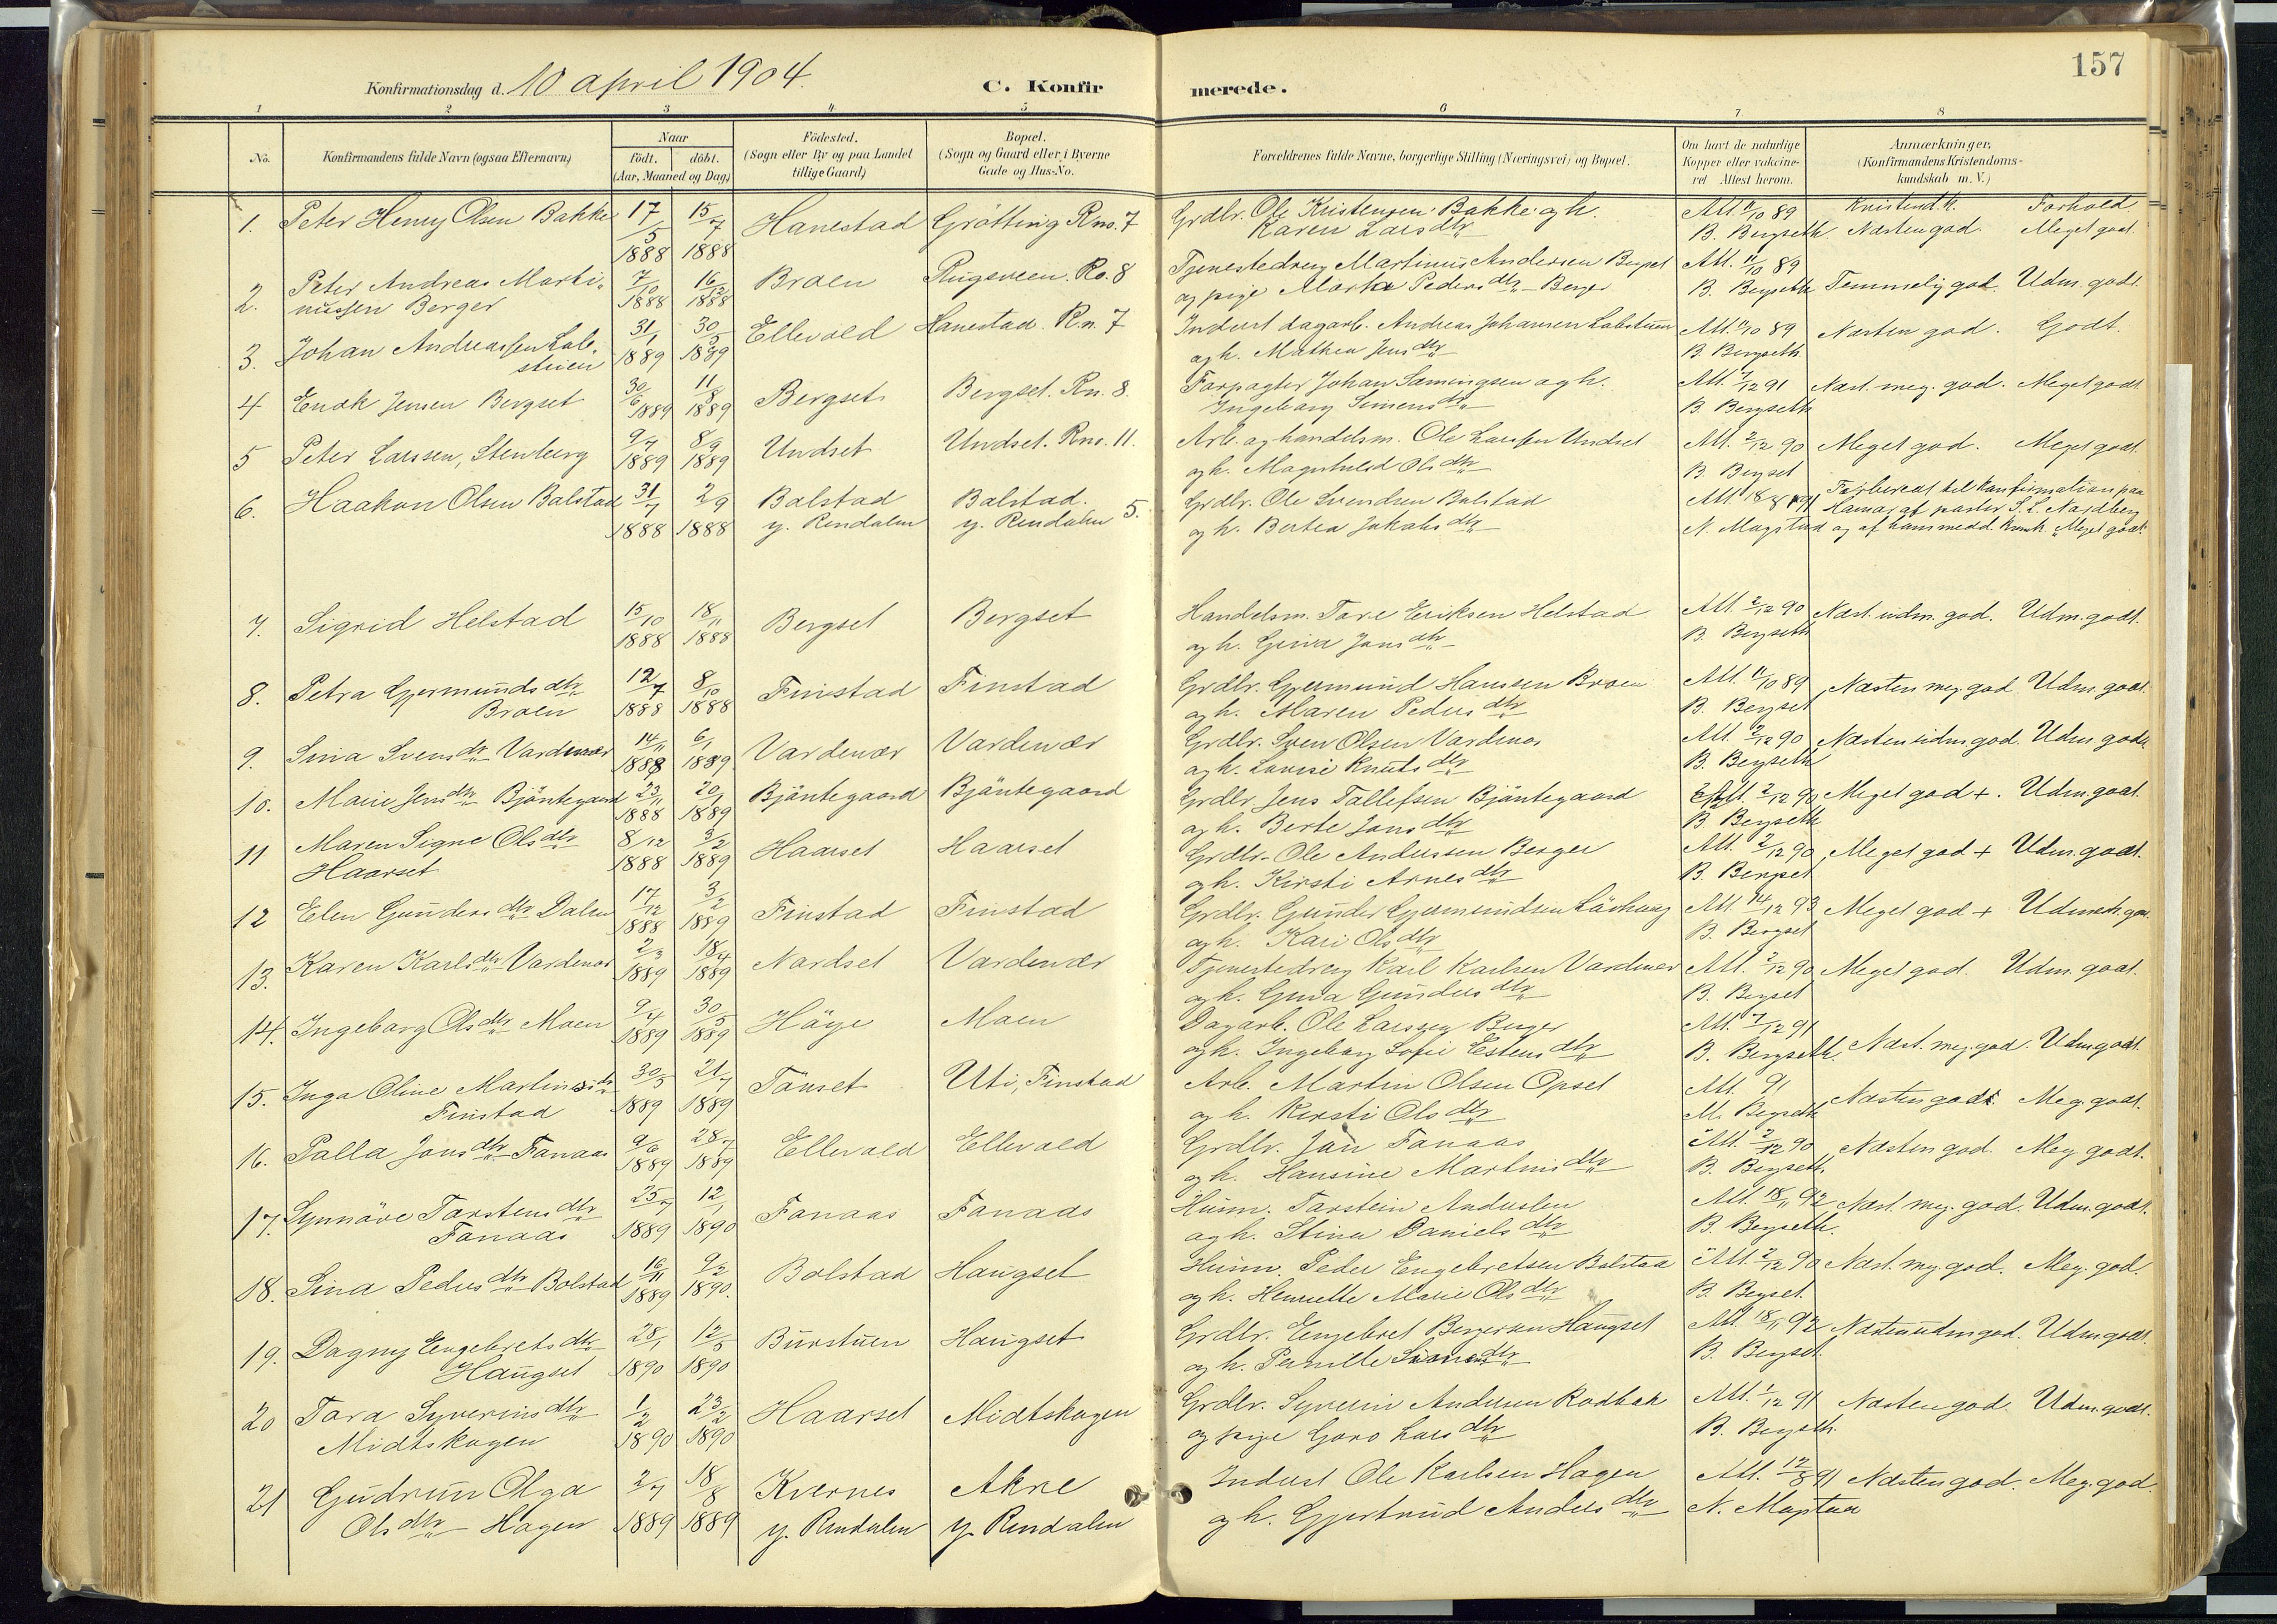 157
Konfirmationsdag d. 10 april 1904.
C. Konfirmerede.
1 2 3 4 5 6 7 8
No. Konfirmandens fulde Navn (ogsaa Efternavn)
Naar
födt. döbt.
(Aar, Maaned og Dag)
Födested.
(Sogn eller By og paa Landet
tillige Gaard)
Bopæl.
(Sogn og Gaard eller i Byerne
Gade og Hus-No.
Forældrenes fulde Navne, borgerlige Stilling (Næringsvei) og Bopæl.
Om havt de naturlige
Kopper eller vakcine-
ret Attest herom.
Anmærkninger.
(Konfirmandens Kristendoms-
kundskab m. V.)
Kristend.k. Forhold
1. Peter Henry Olsen Bakke 17/5 1888 15/7 1888 Hanestad Grötting Rno. 7 Grdbr. Ole Kristensen Bakke og h. Att. 11/10 89
Karen Larsdtr B. Bergseth. Næsten god. Meget godt.
2. Peter Andreas Marti- 7/10 1888 16/12 1888 Braen Ro. 8 Tjenestedreng Martinus Andersen Att. 11/10 89
nussen Berger og pige Pedersdtr Berger B. Bergseth Temmelig god. Udm. godt.
3. Johan Andreassen Lab- 31/1 1889 30/5 1889 Ellevold Hanestad. R.n. 7 Inderst dagarb. Andreas Johansen Labstuen Att. 11/10 89 Næsten god. Godt.
stuen og h. Mathea Jensdtr B. Bergseth
4 Enok Jensen Bergset 30/6 1889 11/8 1889 Bergset Bergset. Rn. 8. Forpagter Johan Samingsen og h. Att. 7/12 91 Næst. meg. god. Meget godt.
Ingeborg Simensdtr B. Bergseth
5 Peter Larssen, Stenberg 9/7 1889 8/9 1889 Undset Undset. Rno. 11. Arb. og handelsm. Ole Larssen Undset Att. 2/12 90 Meget god. Meget godt.
og h. Magnhild Olsdtr B. Bergset
6. Haakon Olsen Balstad 31/7 1888 2/9 1888 Balstad Balstad. Grdbr. Ole Svendsen Balstad Att. 18/8 91 Forberedt til konfirmation paa
y. Rendalen y. Rendalen 5. og h. Bertea Jakobsdtr N. Magstad Hamar af pastor S. L. Nordberg
og af ham medd. karak. Meget godt.
7. Sigrid Helstad 15/10 1888 18/11 1888 Bergset Bergset Handelsm. Tore Eriksen Helstad Att. 2/12 90 Næst. udm. god. Udm. godt.
og h. Gina Jonsdtr B. Bergseth
8. Petra Gjermundsdtr 12/7 1888 8/10 1888 Finstad Finstad Grdbr. Gjermund Hanssen Braen Att. 11/10 89 Næsten meg. god Udm. godt.
Braen og h. Maren Pedersdtr B. Bergset
9. Sina Svensdtr Vardenær 14/11 1888 6/1 1889 Vardenær Vardenær Grdbr. Sven Olsen Vardenær Att. 2/12 90 Næsten udm. god. Udm. godt.
og h. Lovise Knutsdtr B. Bergseth
10. Marie Jensdtr Bjöntegaard 23/11 1888 20/1 1889 Bjöntegaard Bjöntegaard Grdbr. Jens Tollefsen Bjöntegaard Att. 2/12 90 Meget god +. Udm. godt.
og h. Berte Jonsdtr B. Bergseth
11 Maren Signe Olsdtr 8/12 1888 3/2 1889 Haarset Haarset Grdbr. Ole Anderssen Berger Att. 2/12 90 Meget god + Udm. godt.
Haarset og h. Kirsti Arnesdtr B. Bergset
12 Elen Gundersdtr Dalen 17/12 1888 3/2 1889 Finstad Finstad Grdbr. Gunder Gjermundsen Att. 14/12 93 Meget god + Udmerk. godt.
og h. Kari Olsdtr B. Bergset
13. Karen Karlsdtr Vardenær 2/3 1889 18/4 1889 Nordset Vardenær Tjenestedreng Karl Karlsen Vardenær Att. 2/12 90 Meget god. Udm. godt.
og h. Gundersdtr B. Bergset
14. Ingeborg Olsdtr Moen 9/4 1889 30/5 1889 Höye Moen Dagarb. Ole Larssen Berger Att. 7/12 91 Næst. meg. god. Udm. godt.
og h. Ingeborg Sofie Estensdtr B. Bergseth.
15. Inga Oline Martinsdtr 30/5 1889 21/7 1889 Tönset Uti, Finstad Arb. Martin Olsen Opset Att. 91 Næsten god. Meg. godt.
Finstad og h. Kirsti Olsdtr M. Bergseth
16. Palla Jonsdtr Fanaas 9/6 1889 28/7 1889 Ellevold Ellevold Grdbr. Jon Fanaas Att. 2/12 90 Næsten god. Meg. godt.
og h. Hansine Martinsdtr B. Bergseth.
17. Synnöve Torstensdtr 25/7 1889 12/1 1890 Fanaas Fanaas Husm. Torstein Anderssen Att. 18/11 92 Næst. meg. god. Udm. godt.
Fanaas og h. Stina Danielsdtr B. Bergseth.
18. Sina Pedersdtr Bolstad 16/11 1889 9/2 1890. Bolstad Haugset Husm. Peder Engebretsen Bolstad Att. 2/12 90 Næst. meg. god. Meg. god.
og h. Henriette Marie Olsdtr B. Bergset.
19. Dagny Engebretsdtr 28/1 1890 12/5 1890 Burstuen Haugset Grdbr. Engebret Bergersen Haugset Att. 18/11 92 Næsten udm. god. Udm. godt.
Haugset og h. Pernille Simensdtr B. Bergset.
20 Tora Syverinsdtr 1/2 1890 23/2 1890 Haarset Midtskogen Grdbr. Syverin Andersen Rodbak Att. 1/12 91 Næsten god. Udm. godt.
Midtskogen og pige Goro Larsdtr B. Bergseth.
21 Gudrun Olga 2/7 1889 18/8 1889 Kvernes Akre Inderst Ole Karlsen Hagen Att. 12/8 91 Næsten god. Meg. god.
Olsdtr Hagen y. Rendalen y. Rendalen og h. Gjertrud Andersdtr N. Magstad